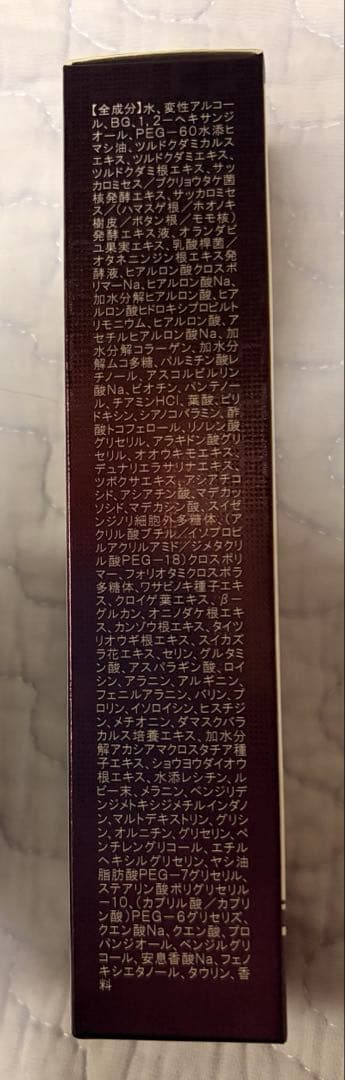 【全成分】水、変性アルコー
ル、BG、1,2-ヘキサンジ
オール、PEG-60水添ヒ
マシ油、ツルドクダミカルス
エキス、ツルドクダミエキス、
ツルドクダミ根エキス、サッ
カロミセス/ブクリョウタケ菌
核発酵エキス、サッカロミセ
ス/(ハマスゲ根/ホオノキ
樹皮/ボタン根/モモ核)
発酵エキス液、オランダビ
ユ果実エキス、乳酸桿菌/
オタネニンジン根エキス発
酵液、ヒアルロン酸クロスポ
リマーNa、ヒアルロン酸Na、
加水分解ヒアルロン酸、ヒア
ルロン酸ヒドロキシプロピルト
リモニウム、ヒアルロン酸、ア
セチルヒアルロン酸Na、加
水分解コラーゲン、加水分
解ムコ多糖、パルミチン酸レ
チノール、アスコルビルリン
酸Na、ビオチン、パンテノー
ル、チアミンHCl、葉酸、ピリ
ドキシン、シアノコバラミン、酢
酸トコフェロール、リノレン酸
グリセリル、アラキドン酸グリ
セリル、オオウキモエキス、
デュナリエラサリナエキス、
ツボクサエキス、アシアチコ
シド、アシアチン酸、マデカッ
ソシド、マデカシン酸、スイゼ
ンジノリ細胞外多糖体、(ア
クリル酸ブチル/イソプロピ
ルアクリルアミド/ジメタクリ
ル酸PEG-18)クロスポリ
マー、フォリオタミクロスポラ
多糖体、ワサビノキ種子エキ
ス、クロイゲ葉エキス、β-
グルカン、オニノダケ根エキ
ス、カンゾウ根エキス、タイツ
リオウギ根エキス、スイカズ
ラ花エキス、セリン、グルタミ
ン酸、アスパラギン酸、ロイ
シン、アラニン、アルギニン、
フェニルアラニン、バリン、プ
ロリン、イソロイシン、ヒスチジ
ン、メチオニン、ダマスクバラ
カルス培養エキス、加水分
解アカシアマクロスタチア種
子エキス、ショウヨウダイオウ
根エキス、水添レシチン、ル
ビー末、メラニン、ベンジリデ
ンジメトキシジメチルインダノ
ン、マルトデキストリン、グリシ
ン、オルニチン、グリセリン、ペ
ンチレングリコール、エチル
ヘキシルグリセリン、ヤシ油
脂肪酸PEG-7グリセリル、
ステアリン酸ポリグリセリル
-10、(カプリル酸/カプリ
ン酸)PEG-6グリセリズ、
クエン酸Na、クエン酸、プロ
パンジオール、ベンジルグリ
コール、安息香酸Na、フェノ
キシエタノール、タウリン、香
料